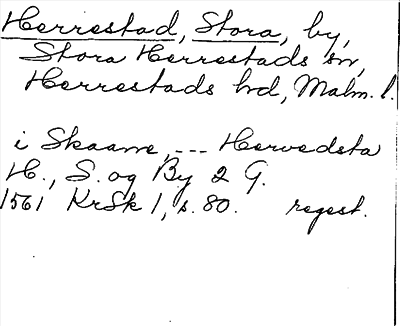 Herrestad, Stora, by,
Stora Herrestads sn,
Herrestads hd, Malm. l.
i Skaane, --- Hervedsta
H., S. og By 2 G.
1561 KrSk 1, s. 80. regest.